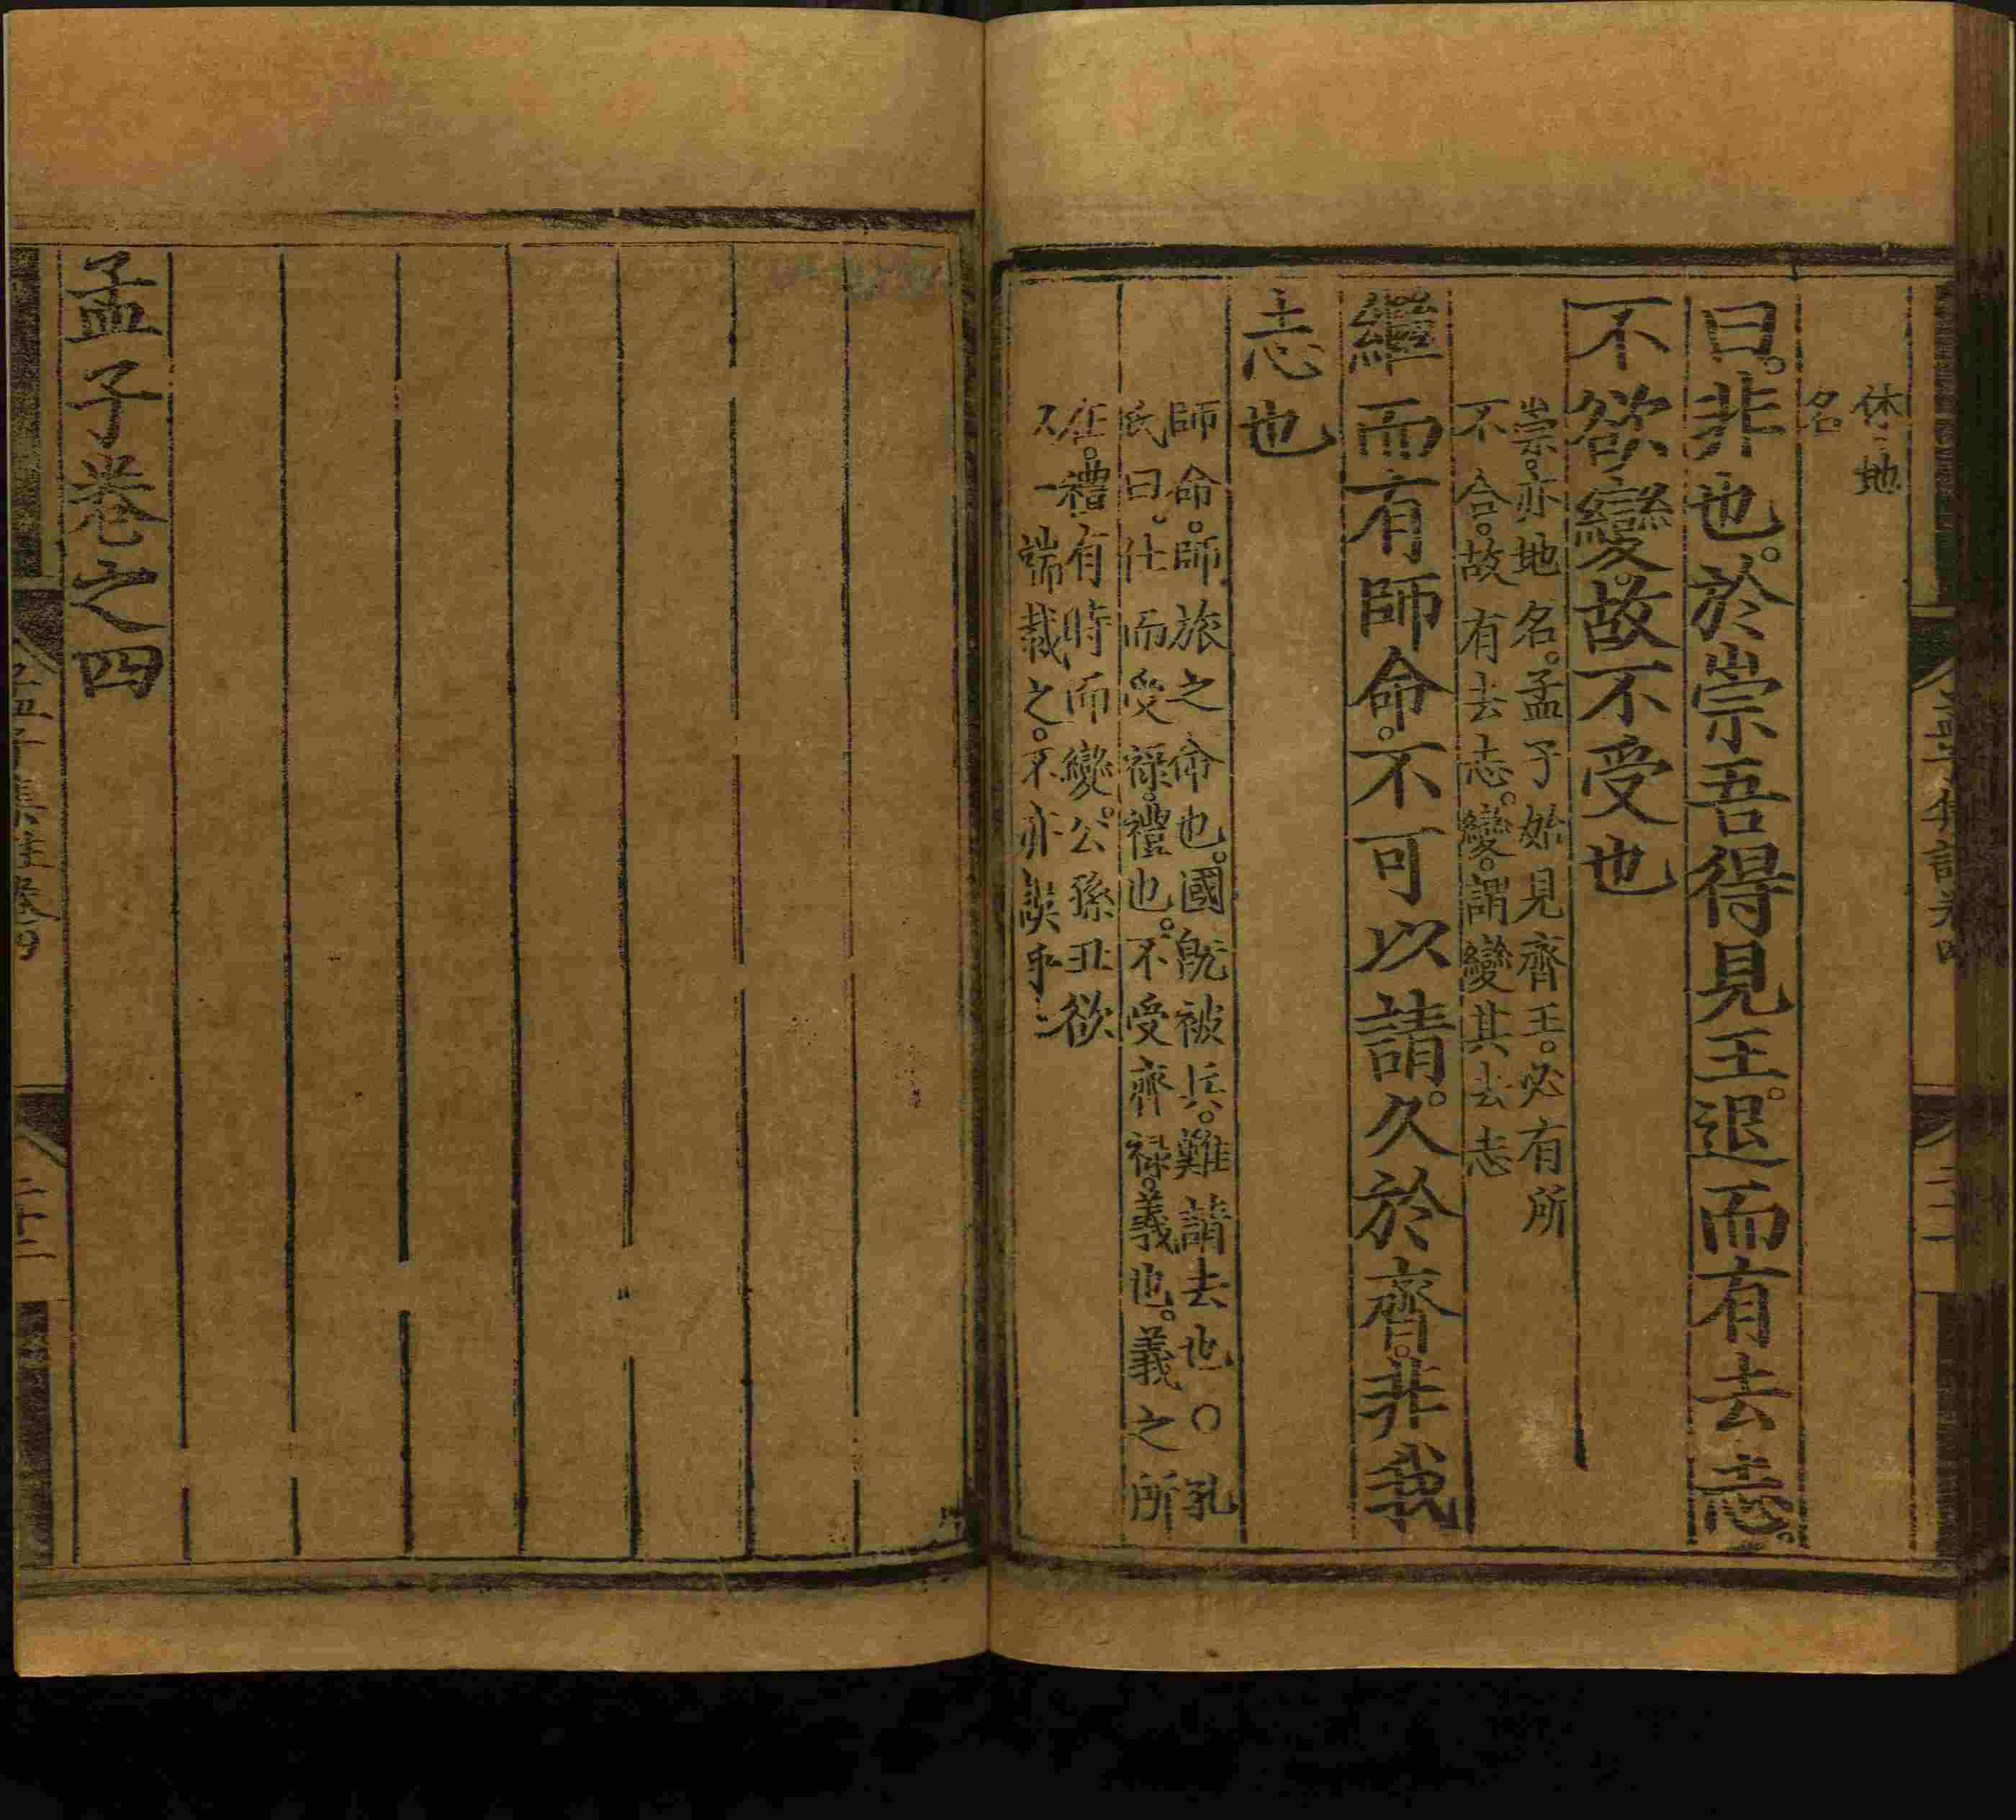 休地
名
曰。非也。於崇吾得見王。退而有去志。
不欲變。故不受也
崇。亦地名。孟子始見齊王。必有所
不合。故有去志。變。謂變其去志
繼而有師命。不可以請。久於齊。非我
志也
師命。師旅之命也。國旣被兵。難請去也○孔
氏曰。仕而受祿。禮也。不受齊祿。義也。義之所
在。禮有時而變。公孫丑欲
以一端裁之。不亦誤乎
孟子卷之四
孟子集註卷四
二十二